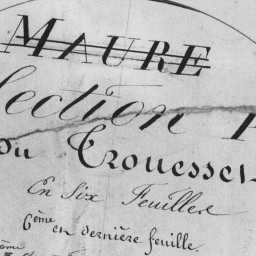 MAURE
Section
du Trouesset
En Six Feuilles
6ème et dernière feuille.